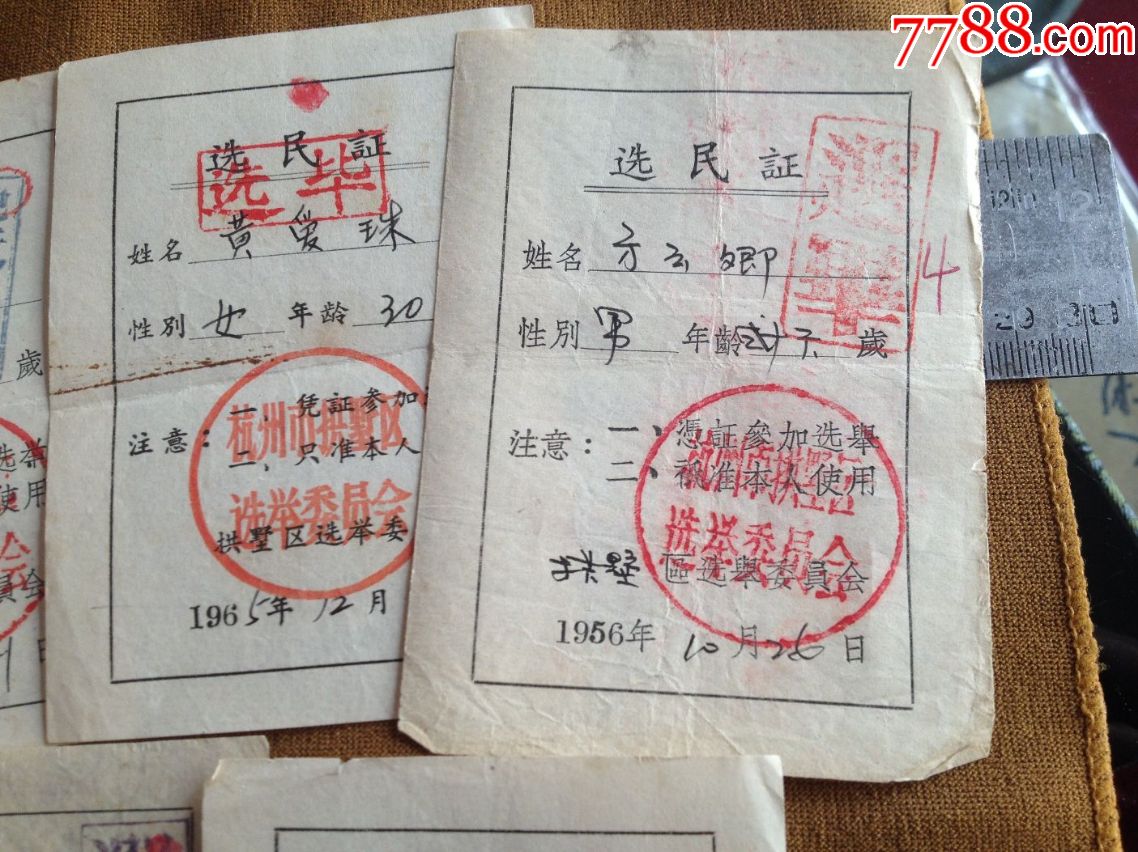 7788.com
选民証
选毕
姓名 黃爱珠
性别 女 年龄 30
注意：一、凭証参加
二、只准本人
杭州市拱墅区
选举委员会
拱墅区选举委
1965年12月
选民証
選畢
4
姓名 方云卿
性别 男 年齡 歲
注意：一、憑証參加选舉
二、祇准本人使用
杭州市拱墅区
选举委员会
拱墅區选舉委員会
1956年10月26日
歲
选举
使用
員会
日
12
29 30